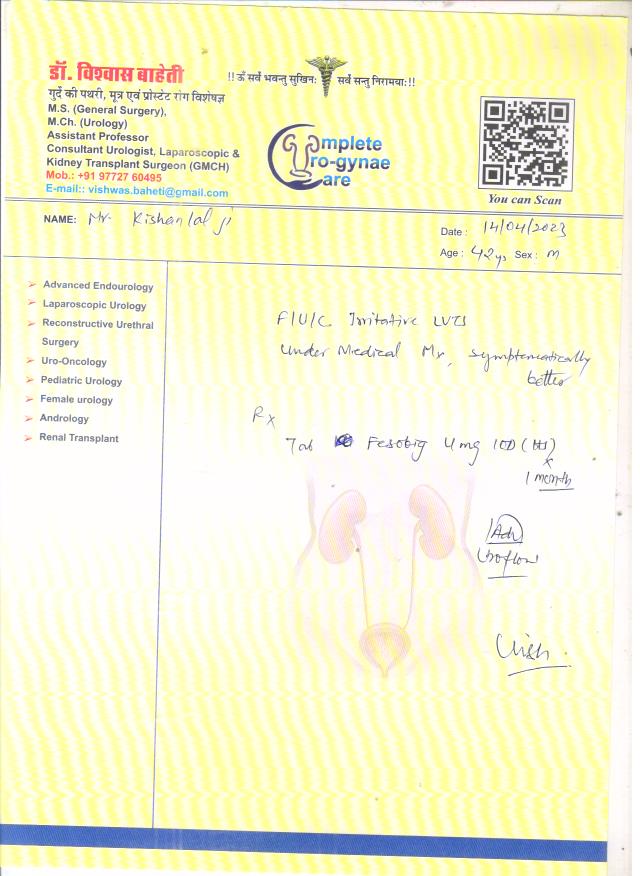 डॉ. विश्वास बाहेती
!! ऊँ सर्वे भवन्तु सुखिनः सर्वे सन्तु निरामयाः !!
गुर्दे की पथरी, मूत्र एवं प्रोस्टेट रोग विशेषज्ञ
M.S. (General Surgery),
M.Ch. (Urology)
Assistant Professor
Consultant Urologist, Laparoscopic &
Kidney Transplant Surgeon (GMCH)
Mob.: +91 97727 60495
E-mail:: vishwas.baheti@gmail.com
Complete
Uro-gynae
Care
You can Scan
NAME: Mr. Kishanlal Ji
Date : 14/04/2023
Age : 42 y, Sex : m
Advanced Endourology
Laparoscopic Urology
Reconstructive Urethral
Surgery
Uro-Oncology
Pediatric Urology
Female urology
Andrology
Renal Transplant
F/U/C Irritative LUTS
Under Medical Mx, symptomatically
better
Rx
Tab Fesobig 4mg 1OD
x
1 month
Adv
Uroflow